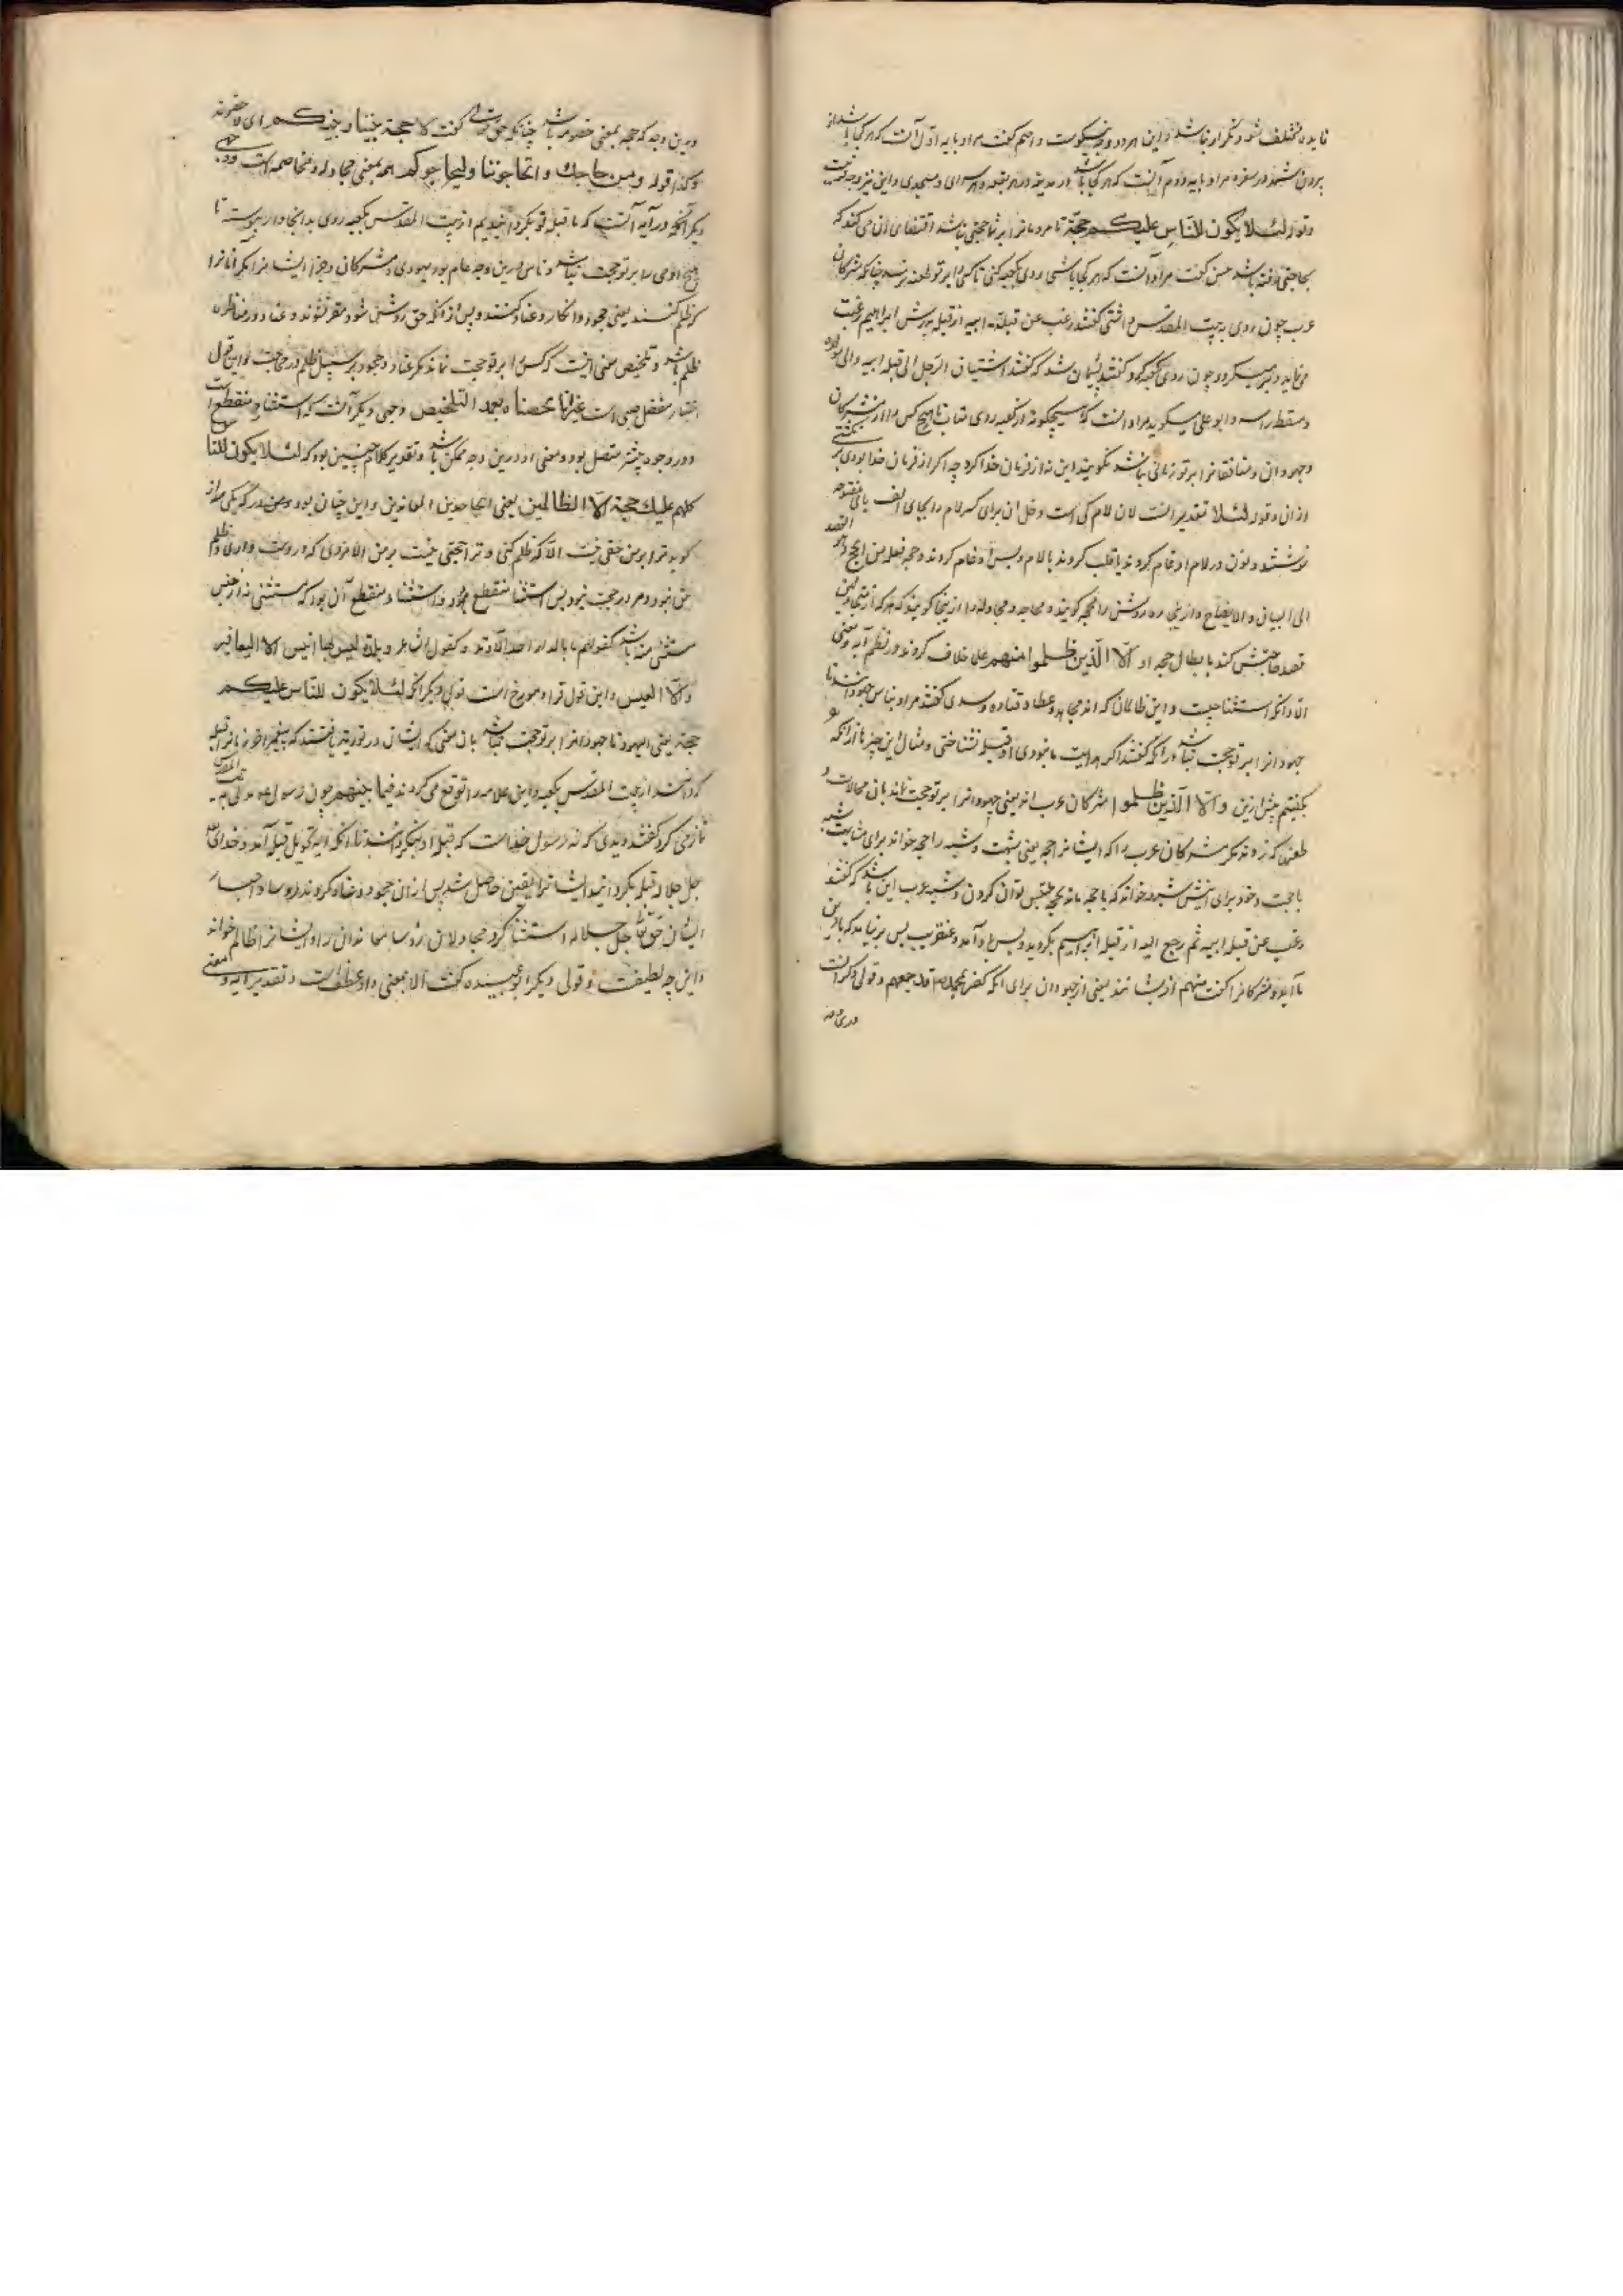 فایده مختلف شود و تکرار نباشد و این هر دو وجه نیکوست و اصم گفت مراد بآیه اول آنست که هر کجا باشد از
برون شهر در سفر و مراد بآیه دوم آنست که هر کجا باشد در مدینه در هر بقعه و هر سرای و مسجدی و این نیز وجه قریبست
و قوله لئلا یکون للناس علیکم حجة تا مردمانرا بر شما حجتی نباشد اقتضای آن می کند که
بحاجتی رفته باشد حسن گفت مراد آنست که هر کجا باشی روی بکعبه کنی تا کسی را بر تو طعنه نرسد چنانکه مشرکان
عرب چون روی به بیت المقدس داشتی گفتند رغب عن قبلة ابیه از قبله پدرش ابراهیم رغبت
می نماید و چون روی بکعبه کرد گفتند پشیمان شد که گفتند اشتیاق الرجل الی قبلة ابیه و الی مولده
و مسقط راسه و ابو علی میگوید مراد آنست که هیچگونه از کعبه روی متاب تا هیچ کس را از مشرکان
و جهودان و منافقانرا بر تو زبانی نباشد نگویند این نه از فرمان خدا کرد چه اگر از فرمان خدا بودی بر نگشتی
از آن و قوله لئلا تقدیر است لان لام کی است و خل ان برای کسر لام را بجای الف یای مفتوحه
نوشتند و نون در لام ادغام کردند یا قلب کردند بالام و پس ادغام کردند و حجه فعله من الحج و هو القصد
الی البیان و الایضاح و از اینجا ره روشن را محجه گویند و محاجه و مجادله را از اینجا گویند که هر که از متحاجین
قصد صاحبش کند بابطال حجه او الا الذین ظلموا منهم علما خلاف کردند در نظم آیه و معنی
الا و آنکه استثنا چیست و این ظالمان که اند مجاهد و عطا و قتاده و سدی گفتند مراد بناس جهودانند تا
جهودانرا بر تو حجت نباشد در آنکه گفتند اگر هدایت ما نبودی او قبله نشناختی و مثال این چیزها از آنکه
بگفتیم پیش ازین و الا الذین ظلموا مشرکان عرب اند یعنی جهودانرا بر تو حجت نماند بآن محالات و
طعنی که زدند مگر مشرکان عرب را که ایشانرا حجه یعنی شبهت و شبهه را حجه خواند برای مشابهت
با حجت و خود برای اینش شبهه خواند که با حجه ماند بحجه ملتبس توان کردن و شبهه عرب این باشد که گفتند
رغب عن قبلة ابیه ثم رجع الیه از قبله ابراهیم بگردید و پس باز آمد و عنقریب بس برنیاید که با دین
ما آید و مشرکانرا گفت منهم از ایشانند یعنی از جهودان برای آنکه کفر بمحمد قد جمعهم و قولی دیگر آنست
درین وجه
و درین وجه که حجه بمعنی خصومت باشد چنانکه حق تعالی گفت لا حجة بیننا و بینکم ای لا خصومة
و کذا قوله و من حاجک و اتحاجوننا و لیحاجوکم همه بمعنی مجادله و مخاصمه است وجهی
دیگر آنکه در آیه آنست که ما قبله تو بگردانیدیم از بیت المقدس بکعبه روی بدانجا دار پیوسته تا
هیچ آدمی را بر تو حجت نباشد و ناس درین وجه عام بود یهودی و مشرکان و جز ایشانرا مگر آنانرا
که ظلم کنند یعنی جحود و انکار و عناد کنند و پس از آنکه حق روشن شود مقر نشوند و عناد در مناظره
ظلم باشد و تلخیص معنی اینست که کس را بر تو حجت نماند مگر عناد و جحود بر سبیل ظلم در محاجت و این قول
اختیار مفضل ضبی است عنی انها محضناه بعد التلخیص و جهی دیگر آنست که استثنا منقطع است
و در وجوه پیشتر متصل بود و معنی او درین وجه ممکن باشد و تقدیر کلام چنین بود که لئلا یکون للناس
کلهم علیک حجة الا الظالمین یعنی الجاحدین المعاندین و این چنان بود که یکی از
گوید ترا بر من حقی نیست الا که ظلم کنی و ترا حجتی نیست بر من الا مزوری که دروغ داری و ظلم
حق نبود و مزور حجت نبود پس استثنا منقطع بود و استثناء منقطع آن بود که مستثنی نه از جنس
مستثنی منه باشد کقولهم ما بالدار احد الا وتد و کقول الشاعر و بلدة لیس بها انیس الا الیعافیر
و الا العیس و این قول فراء و مورخ است قولی دیگر آنکه لئلا یکون للناس علیکم
حجة یعنی الیهود تا جهودانرا بر تو حجت نباشد بآن معنی که ایشان در توریة یافتند که پیغمبر آخر زمانرا قبله
گردانند از بیت المقدس بکعبه و این علامه را توقع می کردند فیما بینهم چون رسول علیه السلام به بیت المقدس
نماز می کرد گفتند دیدی که نه رسول خداست که قبله او بنگردانیدند تا آنکه آیه تحویل قبله آمد و خدای
جل جلاله قبله بگردانید ایشانرا یقین حاصل شد پس از آن جحود و عناد کردند رؤسا و احبار
ایشان حق تعالی جل جلاله استثنا کرد مجادلان رؤسا معاندان را و ایشانرا ظالم خواند
و این وجه لطیفست و قولی دیگر ابو عبیده گفت الا بمعنی واو عطف است و تقدیر آیه و معنی